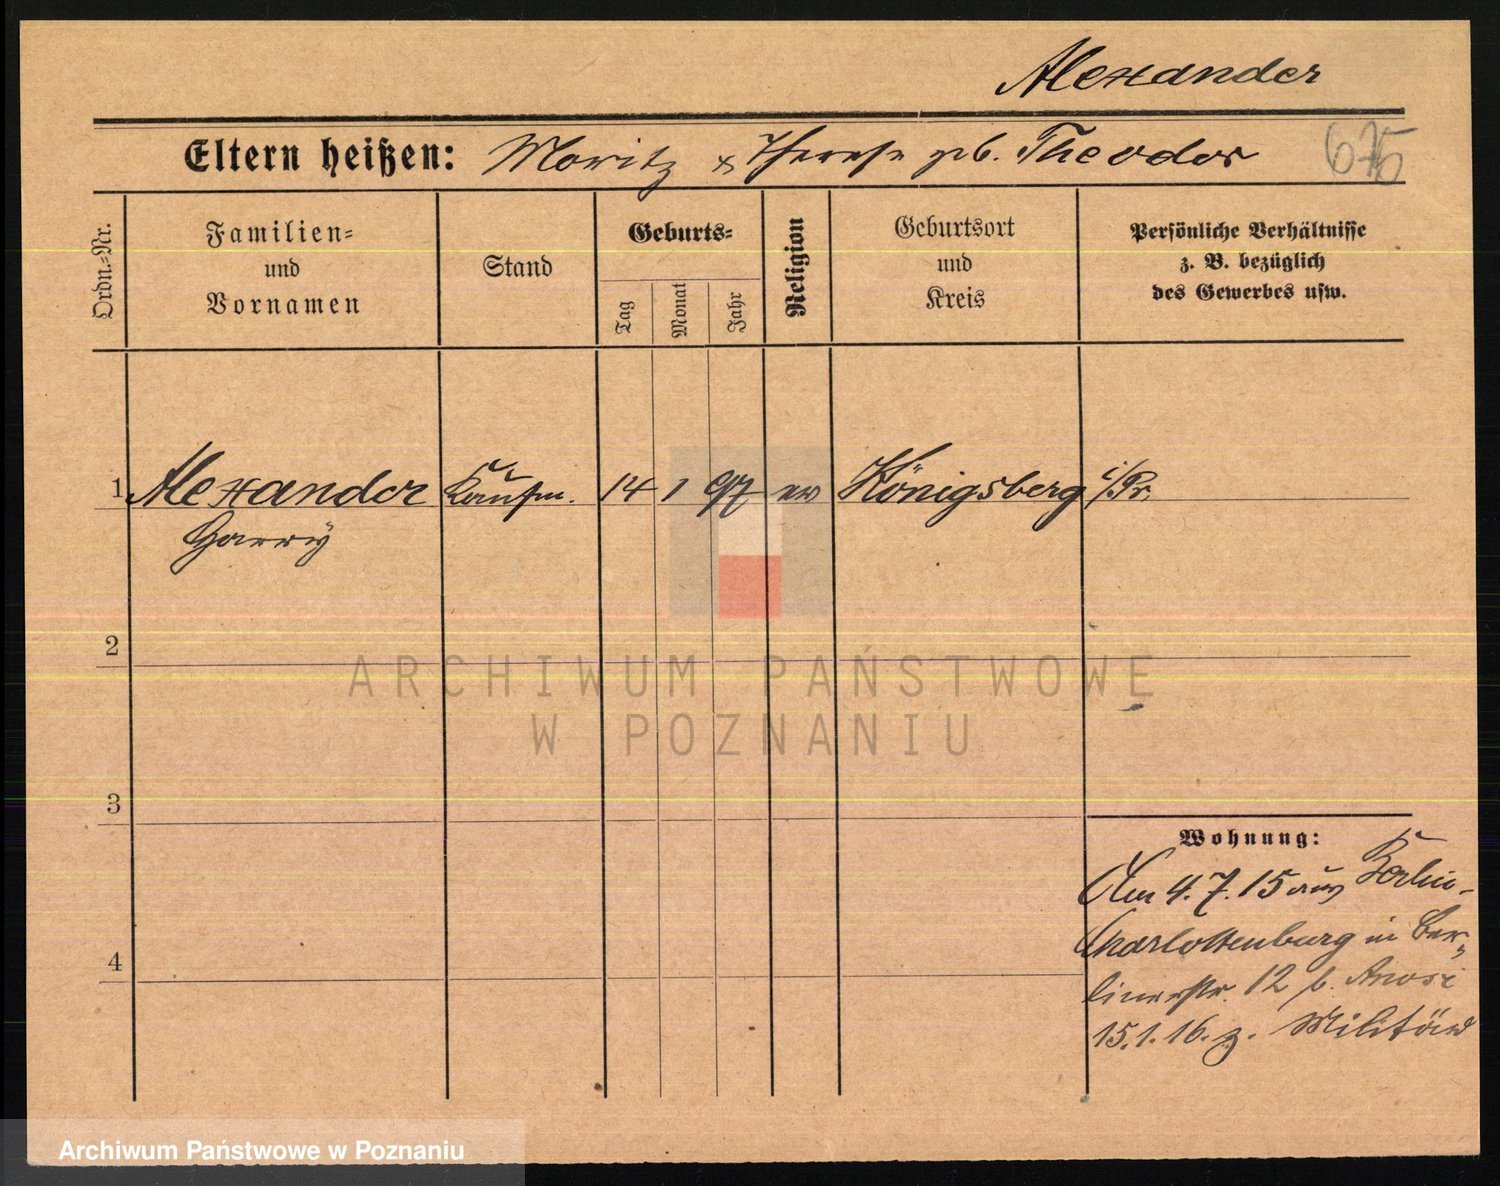 Alexander
Eltern heißen: Moritz & Therese geb. Theodor
675
Ordn.-Nr.
Familien-
und
Vornamen
Stand
Geburts-
Tag
Monat
Jahr
Religion
Geburtsort
und
Kreis
Persönliche Verhältnisse
z. B. bezüglich
des Gewerbes usw.
1 Alexander Kaufm. 14 1 97 ev Königsberg i/Pr.
Harry
2
3
4
Wohnung:
Am 4.7.15 aus Berlin-
Charlottenburg in Ber-
linerstr. 12 b.
15.1.16. z. Militär
ARCHIWUM PAŃSTWOWE
W POZNANIU
Archiwum Państwowe w Poznaniu